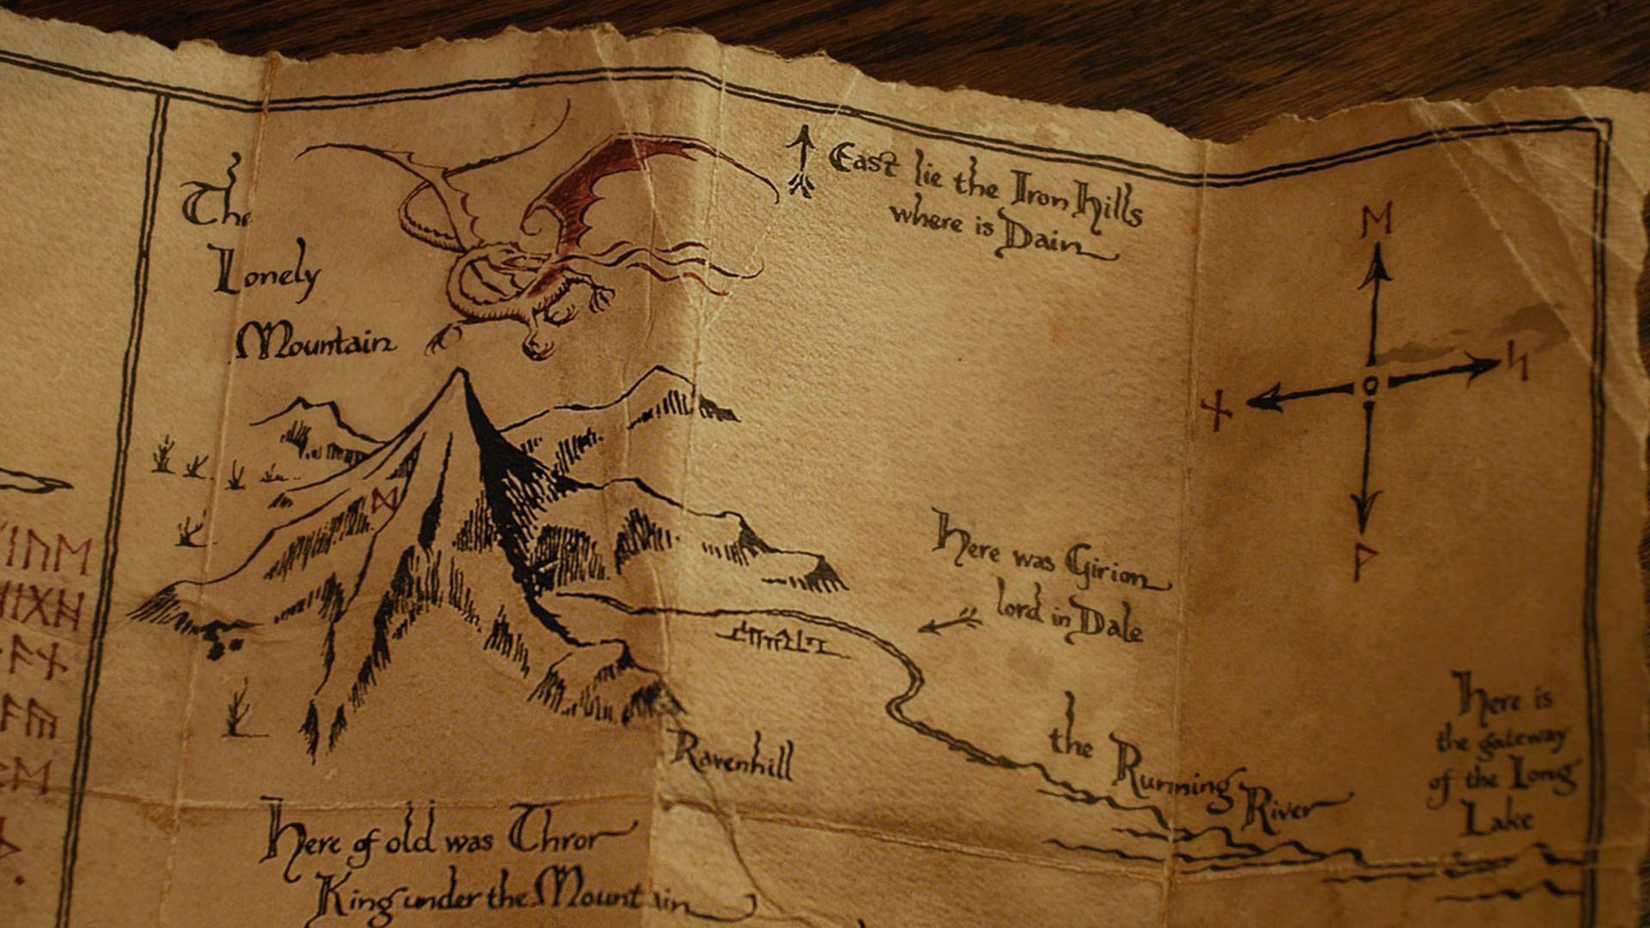 East lie the Iron Hills
where is Dain
The
Lonely
Mountain
ᛗ
ᛋ
ᚾ
ᚹ
ᛞ
Here was Girion
lord in Dale
the Running
River
Ravenhill
Here is
the gateway
of the Long
Lake
Here of old was Thror
King under the Mountain